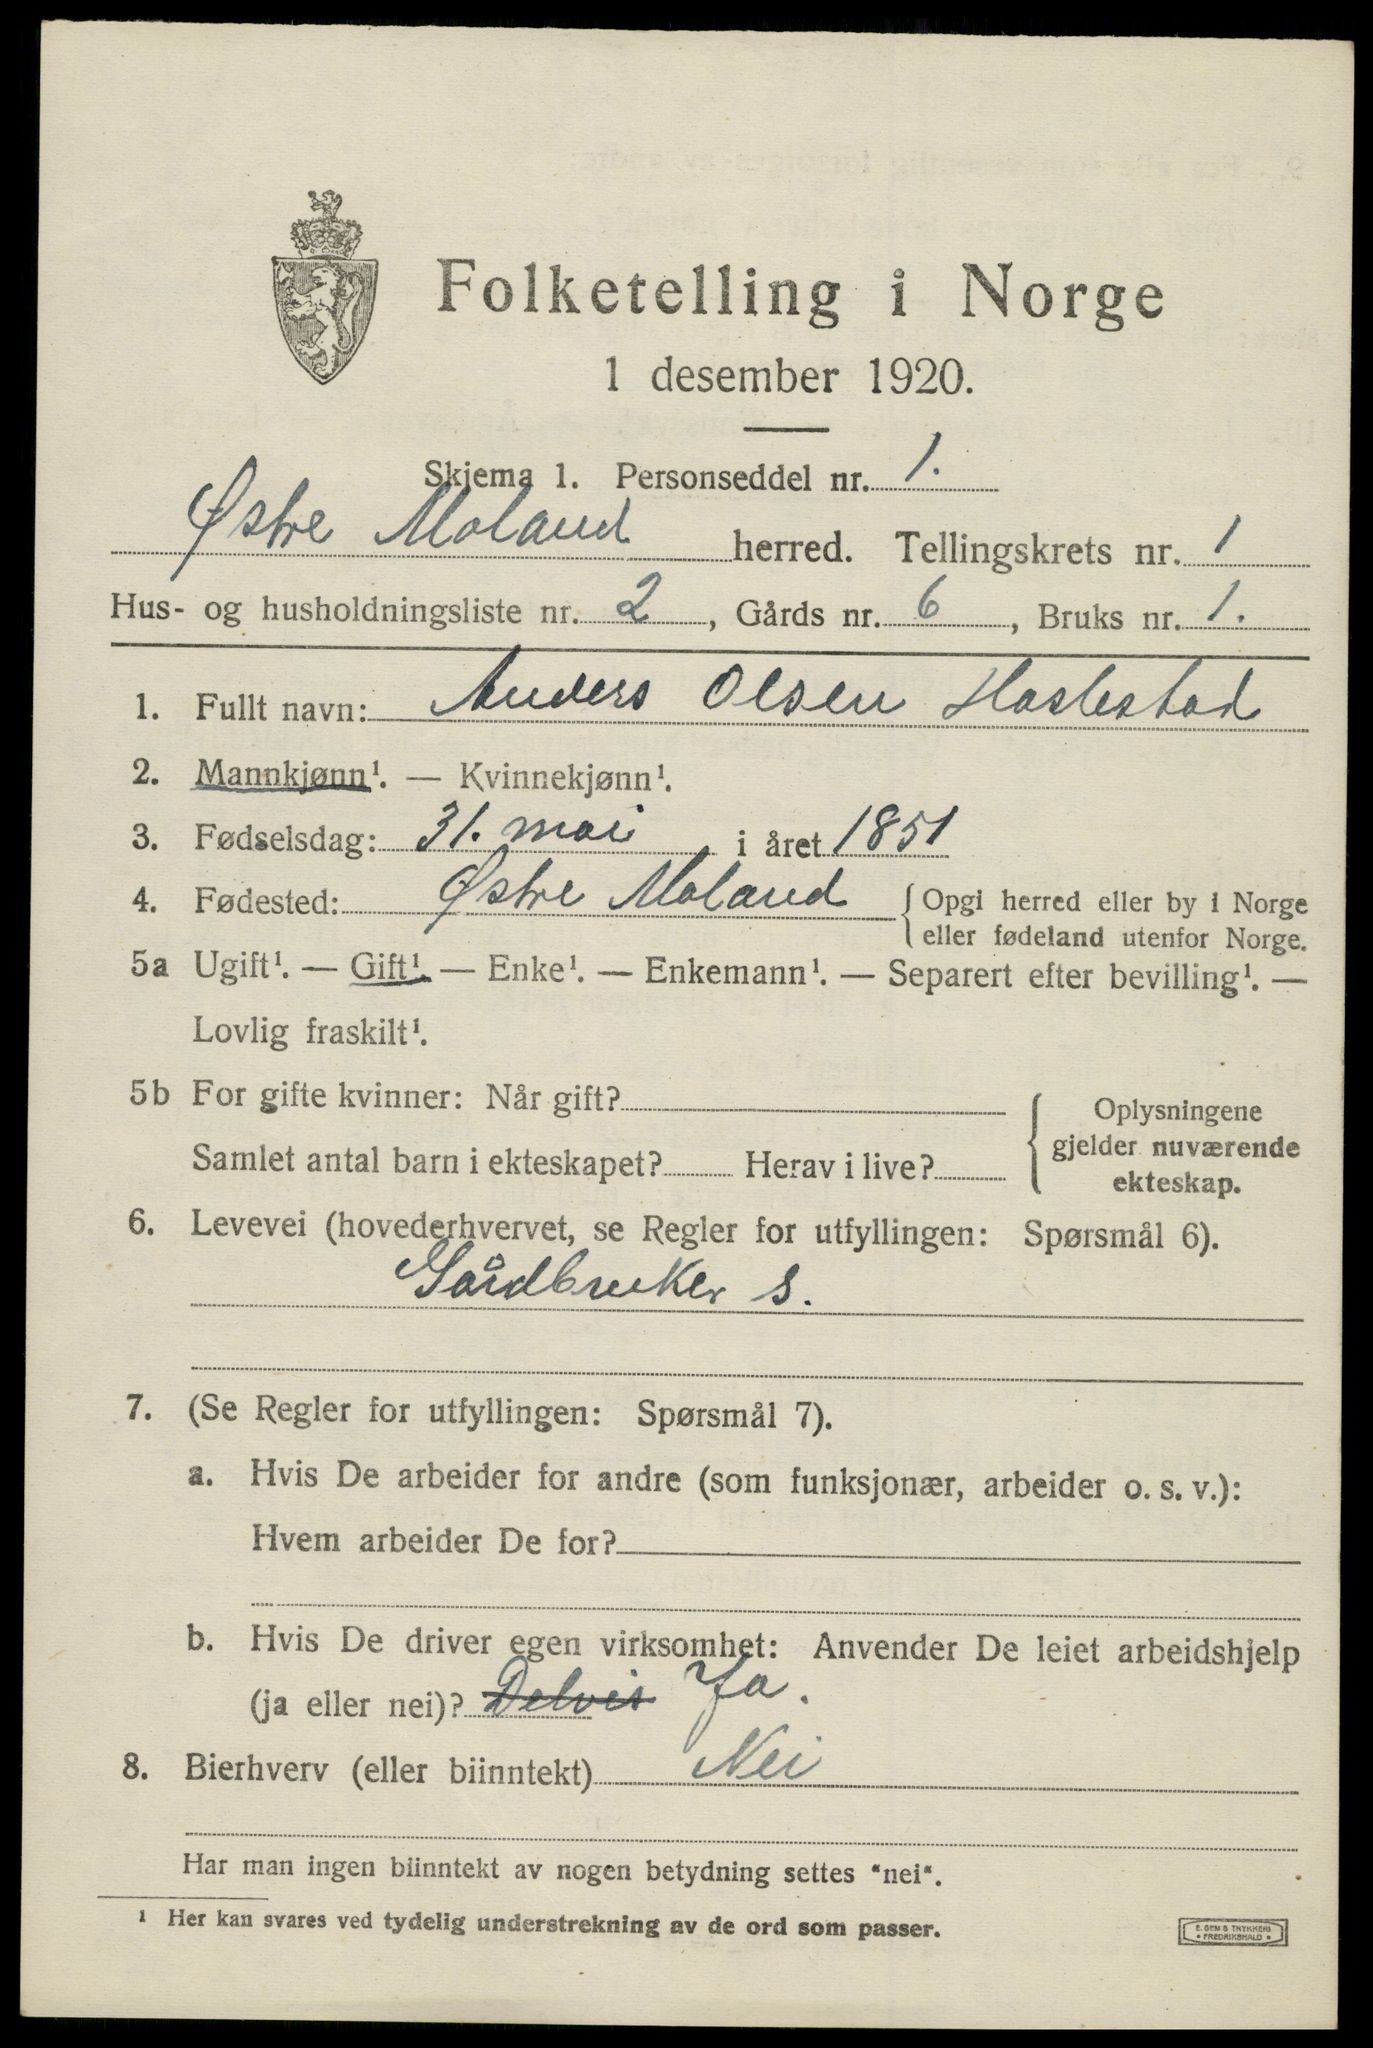 Folketelling i Norge
1 desember 1920.
Skjema 1. Personseddel nr. 1.
Østre Moland herred. Tellingskrets nr. 1
Hus- og husholdningsliste nr. 2, Gårds nr. 6, Bruks nr. 1.
1. Fullt navn: Anders Olsen Haslestad
2. Mannkjønn¹. — Kvinnekjønn¹.
3. Fødselsdag: 31. mai i året 1851
4. Fødested: Østre Moland {Opgi herred eller by i Norge
eller fødeland utenfor Norge.
5a Ugift¹. — Gift¹. — Enke¹. — Enkemann¹. — Separert efter bevilling¹. —
Lovlig fraskilt¹.
5b For gifte kvinner: Når gift?
Samlet antal barn i ekteskapet? Herav i live?
{Oplysningene
gjelder nuværende
ekteskap.
6. Levevei (hovederhvervet, se Regler for utfyllingen: Spørsmål 6).
Gårdbruker s.
7. (Se Regler for utfyllingen: Spørsmål 7).
a. Hvis De arbeider for andre (som funksjonær, arbeider o. s. v.):
Hvem arbeider De for?
b. Hvis De driver egen virksomhet: Anvender De leiet arbeidshjelp
(ja eller nei)? Delvis Ja.
8. Bierhverv (eller biinntekt) Nei
Har man ingen biinntekt av nogen betydning settes "nei".
¹ Her kan svares ved tydelig understrekning av de ord som passer.
E. SEM'S TRYKKERI
• FREDRIKSHALD •